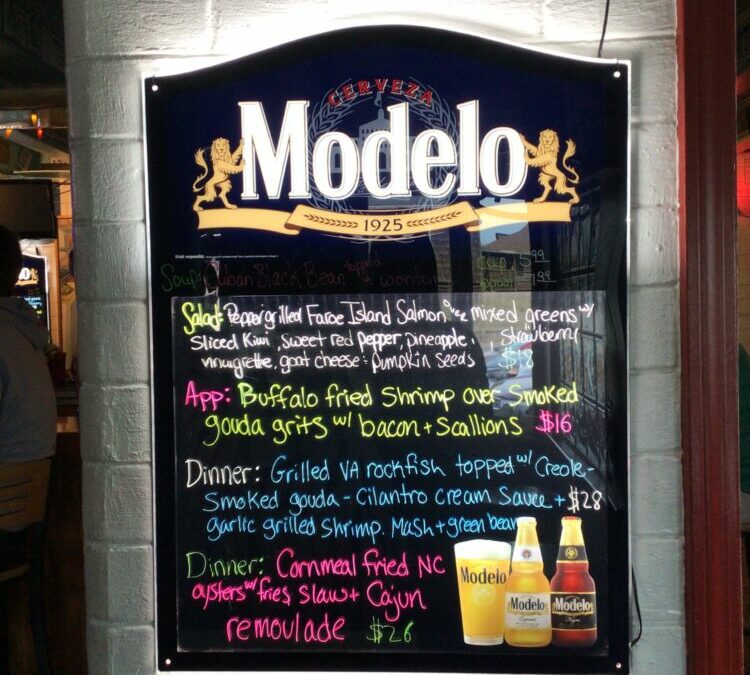 CERVEZA
Modelo
1925
Soup: Cuban Black Bean topped w/ wonton cup 5.99
bowl 7.99
Salad: Pepper grilled Faroe Island Salmon over mixed greens w/
Sliced Kiwi, sweet red pepper, pineapple, Strawberry
vinaigrette, goat cheese + pumpkin seeds $18
App: Buffalo fried Shrimp over Smoked
gouda grits w/ bacon + Scallions $16
Dinner: Grilled VA rockfish topped w/ Creole-
Smoked gouda - Cilantro cream Sauce + $28
garlic grilled Shrimp. Mash + green bean
Dinner: Cornmeal fried NC
oysters w/ fries, Slaw + Cajun
remoulade $26
Modelo
Modelo
Especial
Modelo
Negra